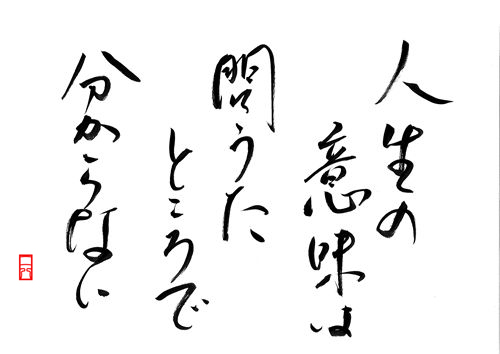 人生の
意味は
問うた
ところで
分からない